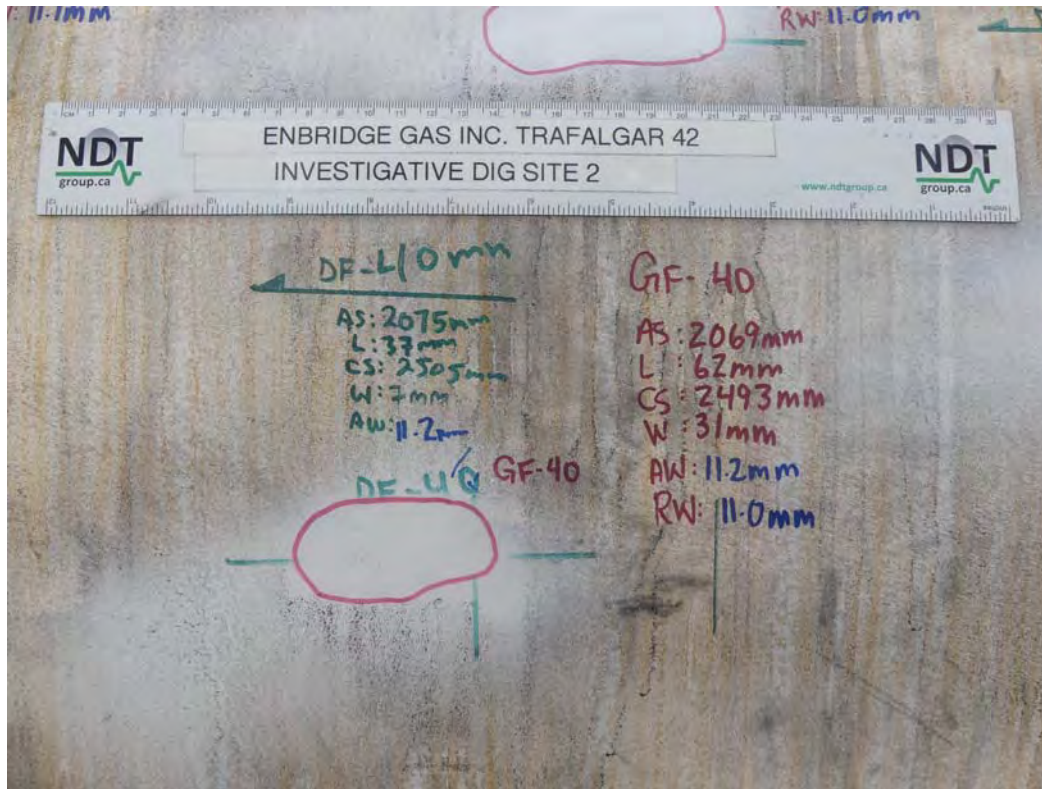 11.1mm
RW: 11.0mm
NDT
group.ca
ENBRIDGE GAS INC. TRAFALGAR 42
INVESTIGATIVE DIG SITE 2
www.ndtgroup.ca
NDT
group.ca
AS: 2075mm
L: 37mm
CS: 2505mm
W: 7mm
AW: 11.2mm
GF-40
AS: 2069mm
L: 62mm
CS: 2493mm
W: 31mm
AW: 11.2mm
RW: 11.0mm
GF-40